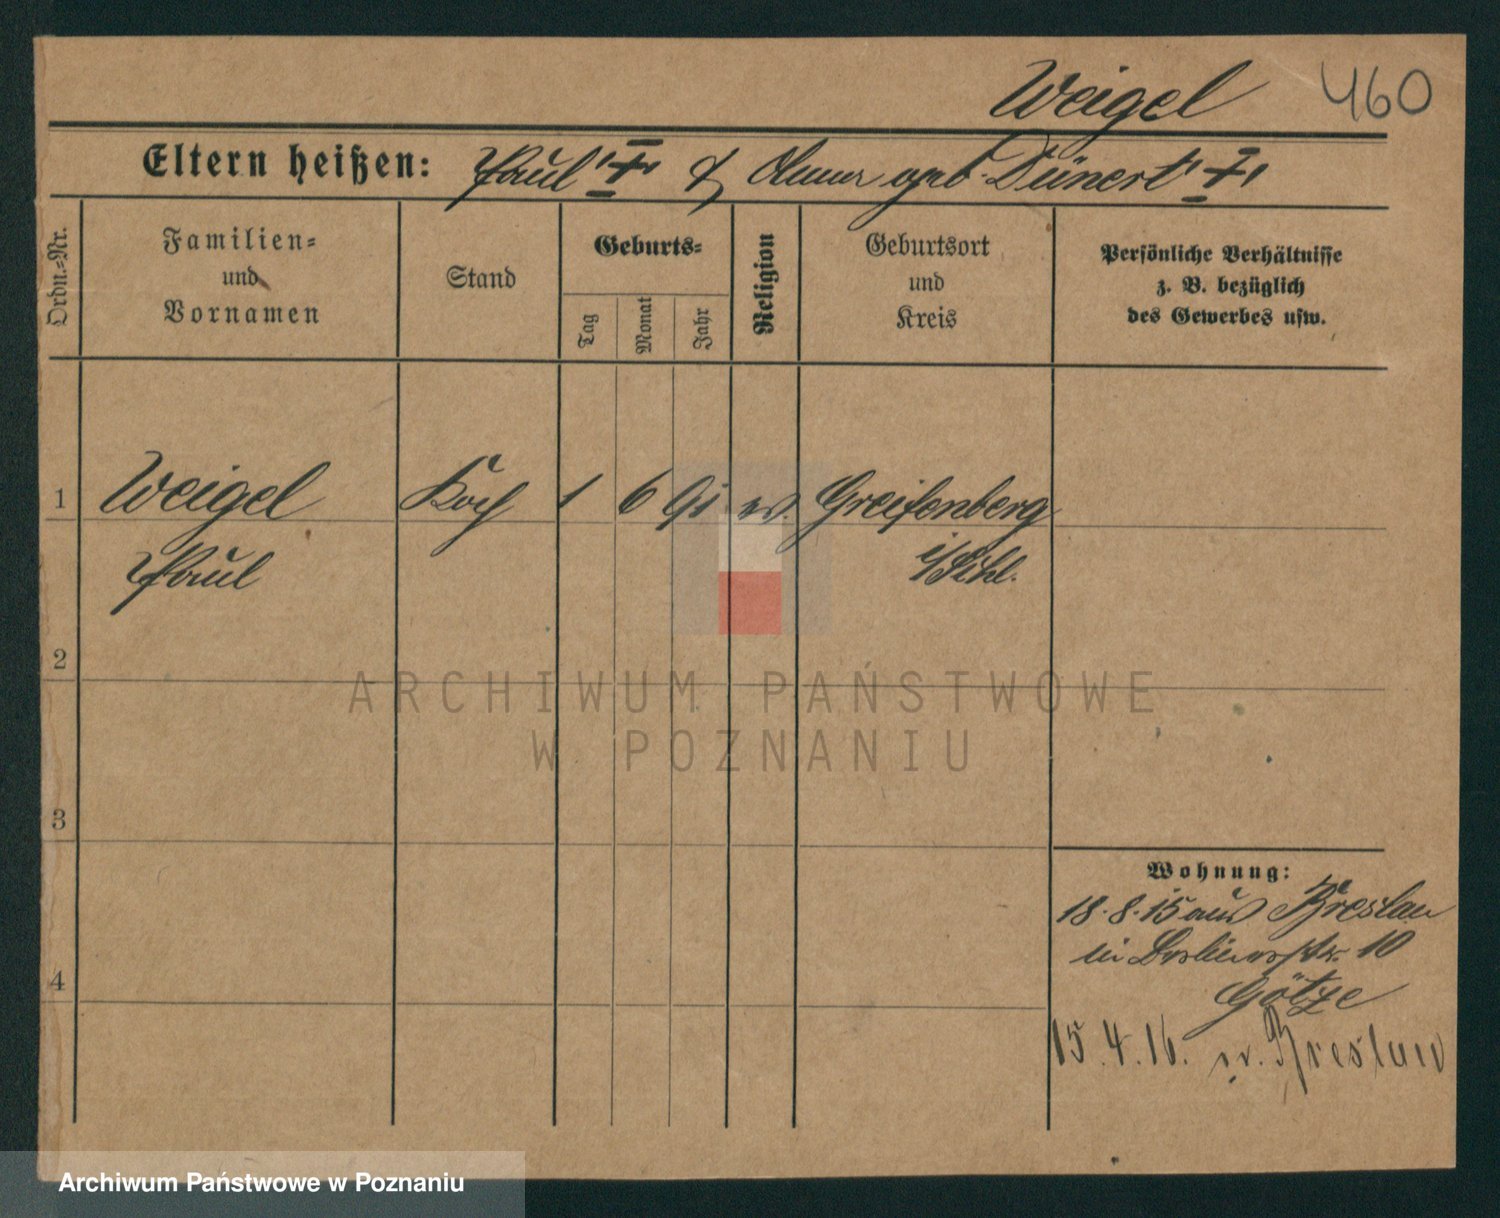 Weigel 460
Eltern heißen: Paul "†" & Anna geb. Dünert "†"
Ordn.=Nr.
Familien=
und
Vornamen
Stand
Geburts=
Tag
Monat
Jahr
Religion
Geburtsort
und
Kreis
Persönliche Verhältnisse
z. B. bezüglich
des Gewerbes usw.
1 Weigel Koch 1 6 91 ev. Greifenberg
Paul i/Schl.
2
3
4
Wohnung:
18.8.15 aus Breslau
in Berlinerstr. 10
Götze
15.4.16. n. Breslau
ARCHIWUM PAŃSTWOWE
W POZNANIU
Archiwum Państwowe w Poznaniu